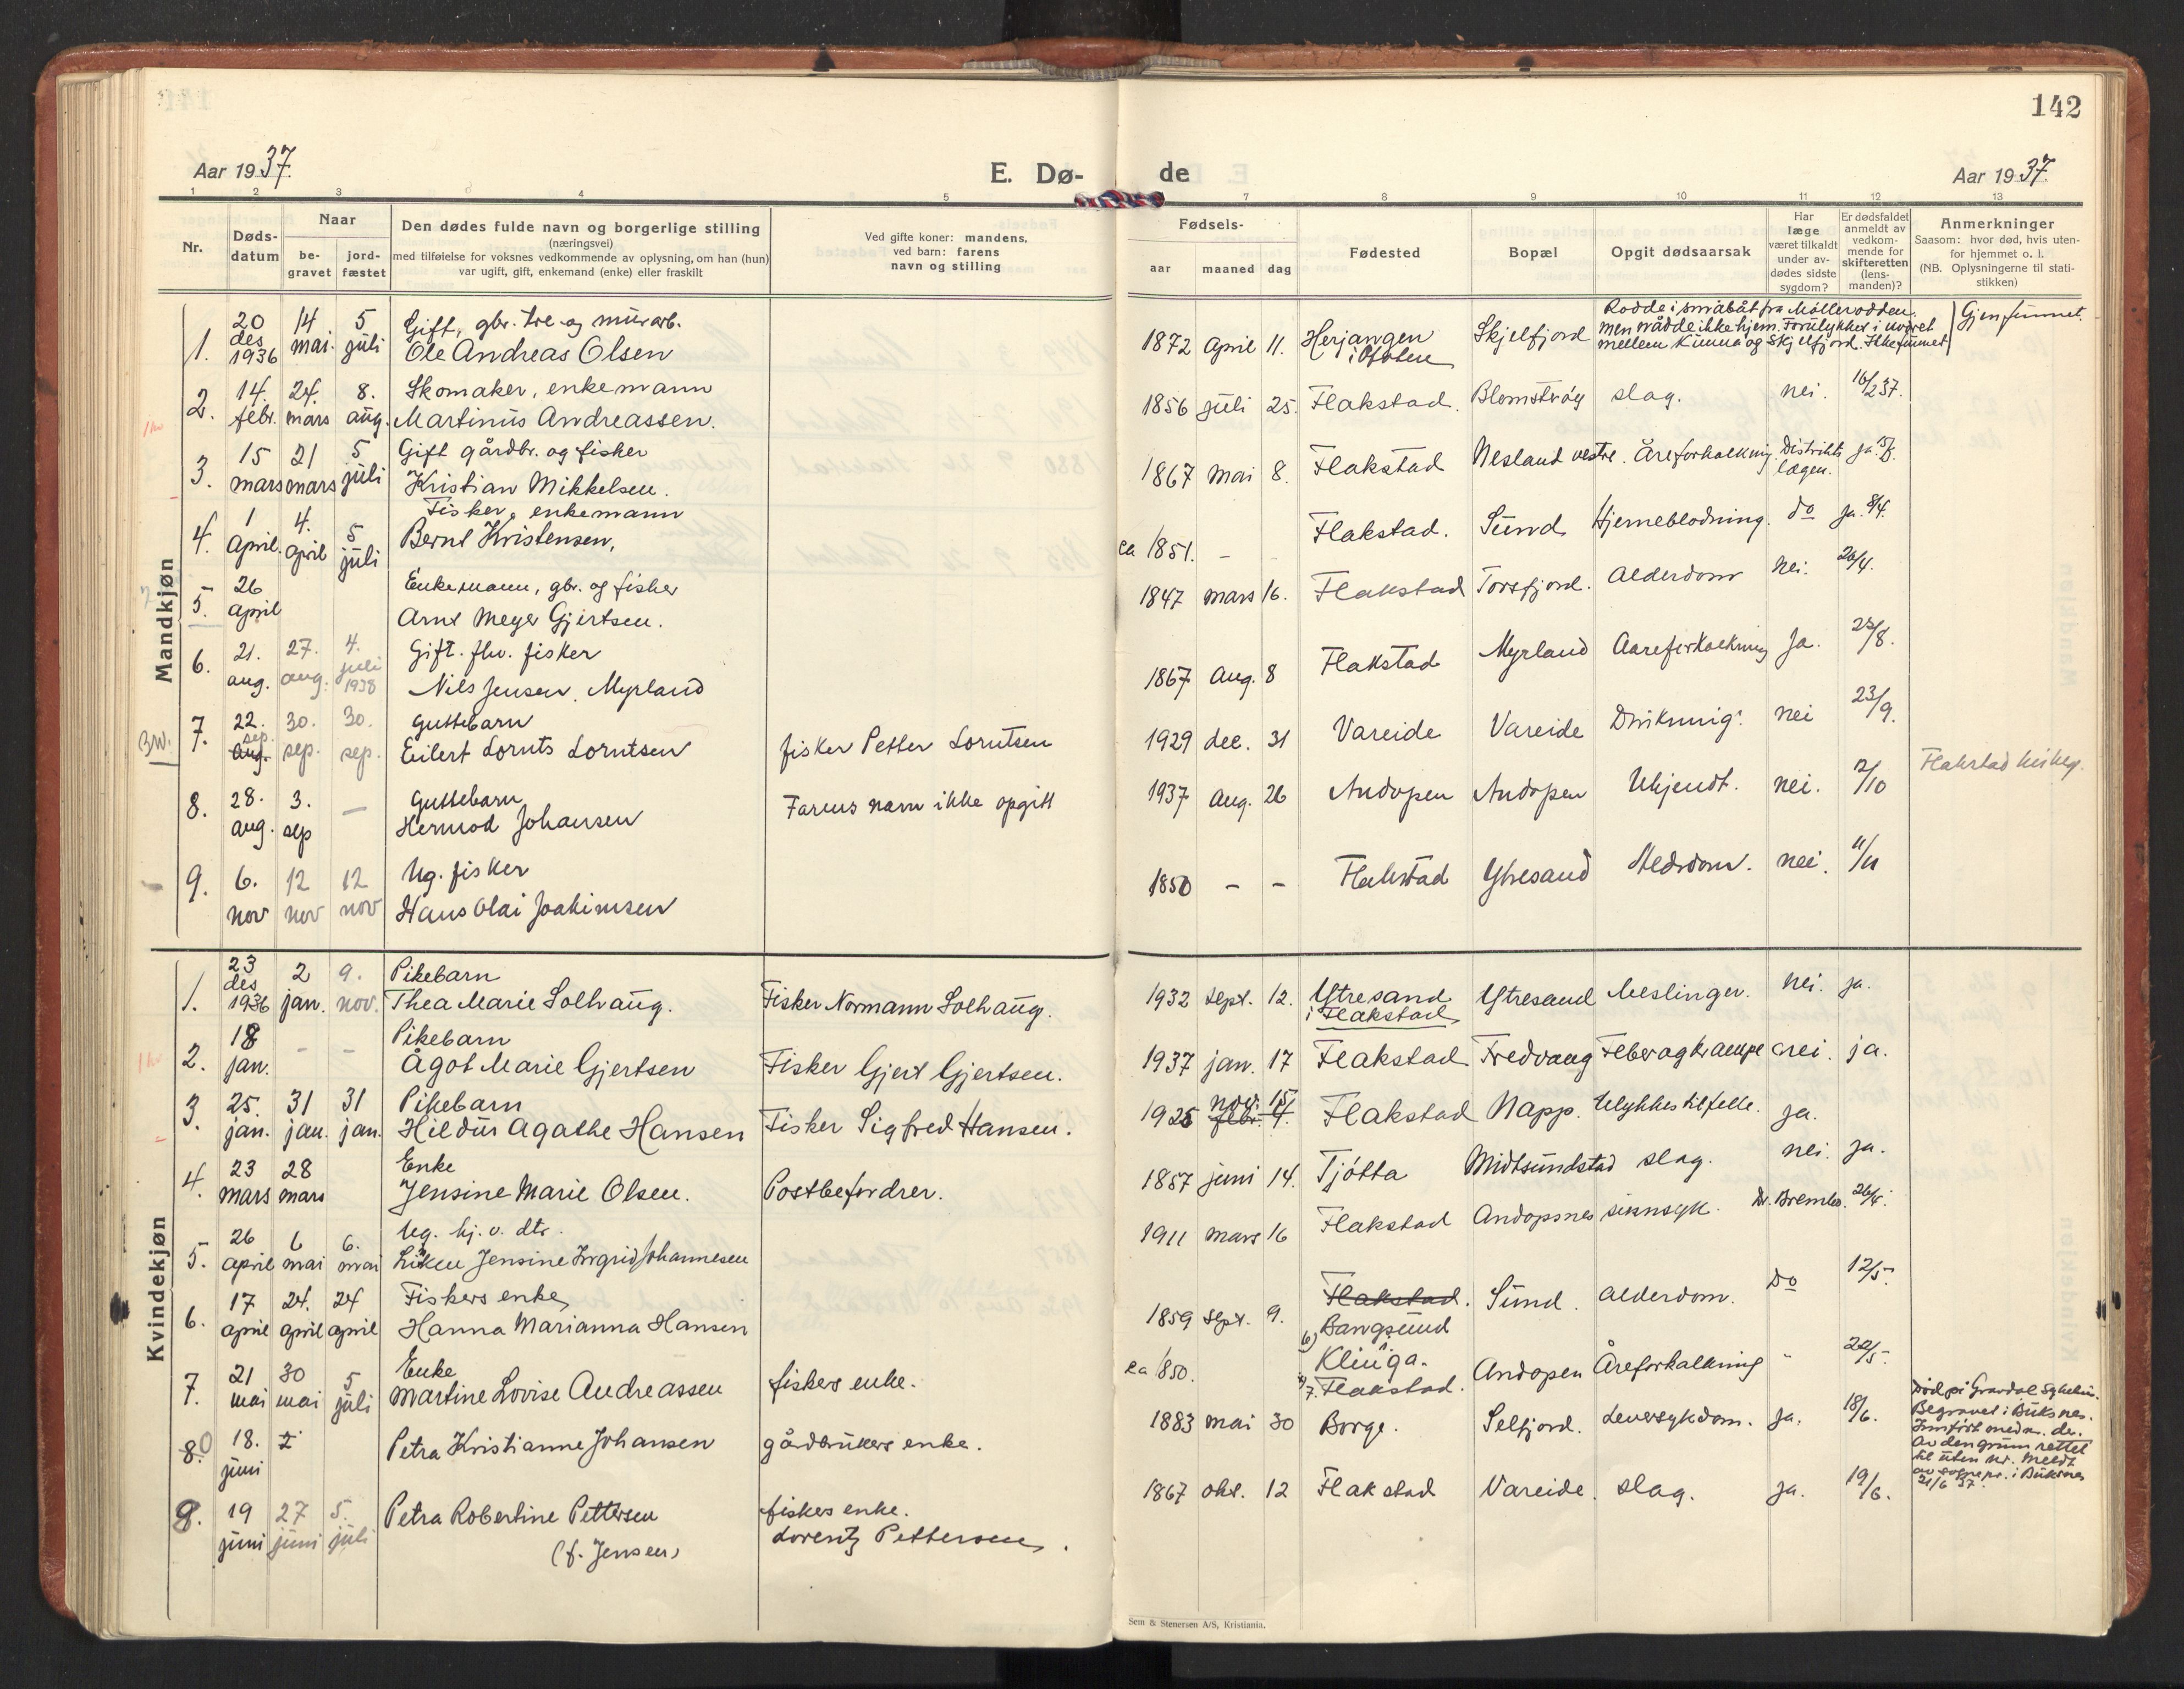 142
Aar 19 37.
E. Dø-
de
Aar 19 37.
1 2 3 4 5 7 8 9 10 11 12 13
Nr.
Døds-
datum
Naar
be-
gravet
jord-
fæstet
Den dødes fulde navn og borgerlige stilling
(næringsvei)
med tilføielse for voksnes vedkommende av oplysning, om han (hun)
var ugift, gift, enkemand (enke) eller fraskilt
Ved gifte koner: mandens,
ved barn: farens
navn og stilling
Fødsels-
aar maaned dag
Fødested
Bopæl
Opgit dødsaarsak
Har
læge
været tilkaldt
under av-
dødes sidste
sygdom?
Er dødsfaldet
anmeldt av
vedkom-
mende for
skifteretten
(lens-
manden)?
Anmerkninger
Saasom: hvor død, hvis uten-
for hjemmet o. l.
(NB. Oplysningerne til stati-
stikken)
Mandkjøn
1. 20 des 1936 14 mai. 5 juli Gift, gbr. tre- og murarb.
Ole Andreas Olsen
1872 April 11. Herjangen i Ofoten Skjelfjord
Rodde i småbåt fra Møllerodden,
men nådde ikke hjem. Forulykket i uværet
mellem Kunna og Skjelfjord. Ikke funnet
Gjenfunnet.
2. 14. febr. 24. mars 8. aug. Skomaker, enkemann
Martinus Andreassen.
1856 juli 25. Flakstad. slag. nei. 16/2 37.
3. 15 mars 21 mars 5 juli Gift gårdbr. og fisker
Kristian Mikkelsen.
1867 Mai 8. Flakstad Nesland vestre. Åreforkalkning. Distrikts
lægen. ja.
4. 1 April. 4. april 5 juli Fisker, enkemann
Bernt Kristensen,
ca 1851. - - Flakstad. Sund Hjerneblødning. do ja. 8/4.
5. 26 april Enkemann, gbr. og fisker
Arnt Meyer Gjertsen.
1847 mars 16. Flakstad Torsfjord. Alderdom nei. 26/4.
6. 21. aug. 27. aug. 4. juli 1938 Gift. fhv. fisker
Nils Jensen Myrland
1867 Aug. 8 Flakstad Myrland Aareforkalkning Ja. 25/8.
7. 22. sep. aug. 30. sep. 30. sep. Guttebarn
Eilert Lornts Lorntsen fisker Petter Lorntsen
1929 dec. 31 Vareide Vareide Drukning. nei 23/9.
8. 28. aug. 3. sep — Guttebarn
Hermod Johansen Farens navn ikke opgitt
1937 Aug. 26 Andopen Andopen Ukjendt. nei. 2/10 Flakstad kirkeg.
9. 6. nov 12 nov 12 nov Ug. fisker
Hans Olai Joakimsen
1850 - - Flakstad Ytresand Alderdom. nei. 11/11
Kvindekjøn
1. 23 des 1936 2 jan. 9. nov. Pikebarn
Thea Marie Solhaug. Fisker Normann Solhaug.
1932 sept. 12. Ytresand
i Flakstad Ytresand Meslinger. nei. ja.
2. 18 jan. - - Pikebarn
Ågot Marie Gjertsen Fisker Gjert Gjertsen.
1937 jan. 17 Flakstad Fredvang Feber og krampe nei. ja.
3. 25. jan. 31 jan. 31 jan. Pikebarn
Hildur Agathe Hansen Fisker Sigfred Hansen.
1925 nov. 15. febr. 4. Flakstad Napp. Ulykkestilfelle. ja.
4. 23 mars 28 mars Enke
Jensine Marie Olsen. Postbefordrer.
1857 juni 14. Tjøtta Midtsundstad slag. nei. ja.
5. 26 april 6 mai 6. mai Ug. hj. v. dtr.
Jensine Ingrid Johannesen
1911 mars 16 Flakstad Andopsnes sinnsyk. Dr. 26/4.
6. 17 april 24. april 24 april Fiskers enke,
Hanna Marianna Hansen
1859 Sept. 9. Flakstad. Sund. alderdom. Do 12/5.
6) Bangsund
Klinga.
7. 21 mai 30 mai 5 juli Enke
Martine Lovise Andreassen fiskers enke.
ca 1850. 7. Flakstad. Andopen Åreforkalkning - 22/5.
8. 0 18. juni Petra Kristianne Johansen gårdbrukers enke.
1883 mai 30 Borge. Selfjord. Leversykdom. ja. 18/6.
Død på Gravdal Sykehus.
Begravet i Buksnes.
Innført med nr. der.
Av den grunn rettet
til uten nr. Meldt
av sognepr. i Buksnes
21/6 37.
8. 19 juni 27 juni 5. juli Petra Robertine Pettersen
(f. Jensen) fiskers enke.
Lorentz Pettersen.
1867 okt. 12 Flakstad Vareide. slag. ja. 19/6.
Sem & Stenersen A/S, Kristiania.